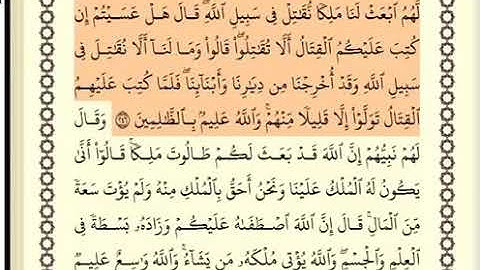 لَّهُمُ ٱبۡعَثۡ لَنَا مَلِكٗا نُّقَٰتِلۡ فِي سَبِيلِ ٱللَّهِۖ قَالَ هَلۡ عَسَيۡتُمۡ إِن
كُتِبَ عَلَيۡكُمُ ٱلۡقِتَالُ أَلَّا تُقَٰتِلُواْۖ قَالُواْ وَمَا لَنَآ أَلَّا نُقَٰتِلَ فِي
سَبِيلِ ٱللَّهِ وَقَدۡ أُخۡرِجۡنَا مِن دِيَٰرِنَا وَأَبۡنَآئِنَاۖ فَلَمَّا كُتِبَ عَلَيۡهِمُ
ٱلۡقِتَالُ تَوَلَّوۡاْ إِلَّا قَلِيلٗا مِّنۡهُمۡۚ وَٱللَّهُ عَلِيمُۢ بِٱلظَّٰلِمِينَ ٢٤٦ وَقَالَ
لَهُمۡ نَبِيُّهُمۡ إِنَّ ٱللَّهَ قَدۡ بَعَثَ لَكُمۡ طَالُوتَ مَلِكٗاۚ قَالُوٓاْ أَنَّىٰ
يَكُونُ لَهُ ٱلۡمُلۡكُ عَلَيۡنَا وَنَحۡنُ أَحَقُّ بِٱلۡمُلۡكِ مِنۡهُ وَلَمۡ يُؤۡتَ سَعَةٗ
مِّنَ ٱلۡمَالِۚ قَالَ إِنَّ ٱللَّهَ ٱصۡطَفَىٰهُ عَلَيۡكُمۡ وَزَادَهُۥ بَسۡطَةٗ فِي
ٱلۡعِلۡمِ وَٱلۡجِسۡمِۖ وَٱللَّهُ يُؤۡتِي مُلۡكَهُۥ مَن يَشَآءُۚ وَٱللَّهُ وَٰسِعٌ عَلِيمٞ